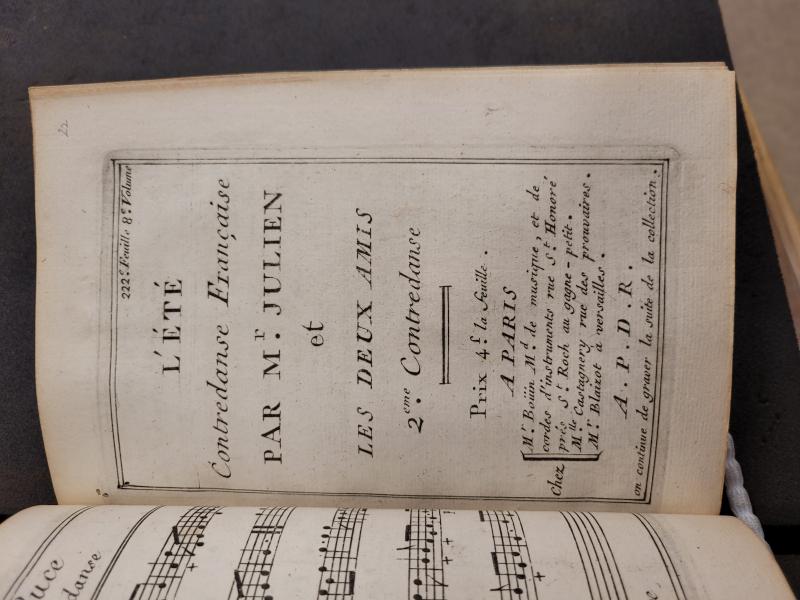 22
222.e Feuille 8.e Volume
L'ÉTÉ
Contredanse Française
PAR M.r JULIEN
et
LES DEUX AMIS
2.eme Contredanse
Prix 4.f la feuille.
A PARIS
Chez
M.r Boüin M.d de musique, et de
cordes d'instruments rue S.t Honoré
près S.t Roch au gagne-petit.
M.lle Castagnery rue des prouvaires.
M.r Blaizot à versailles.
A. P. D. R.
on continue de graver la suite de la collection.
Puce
danse